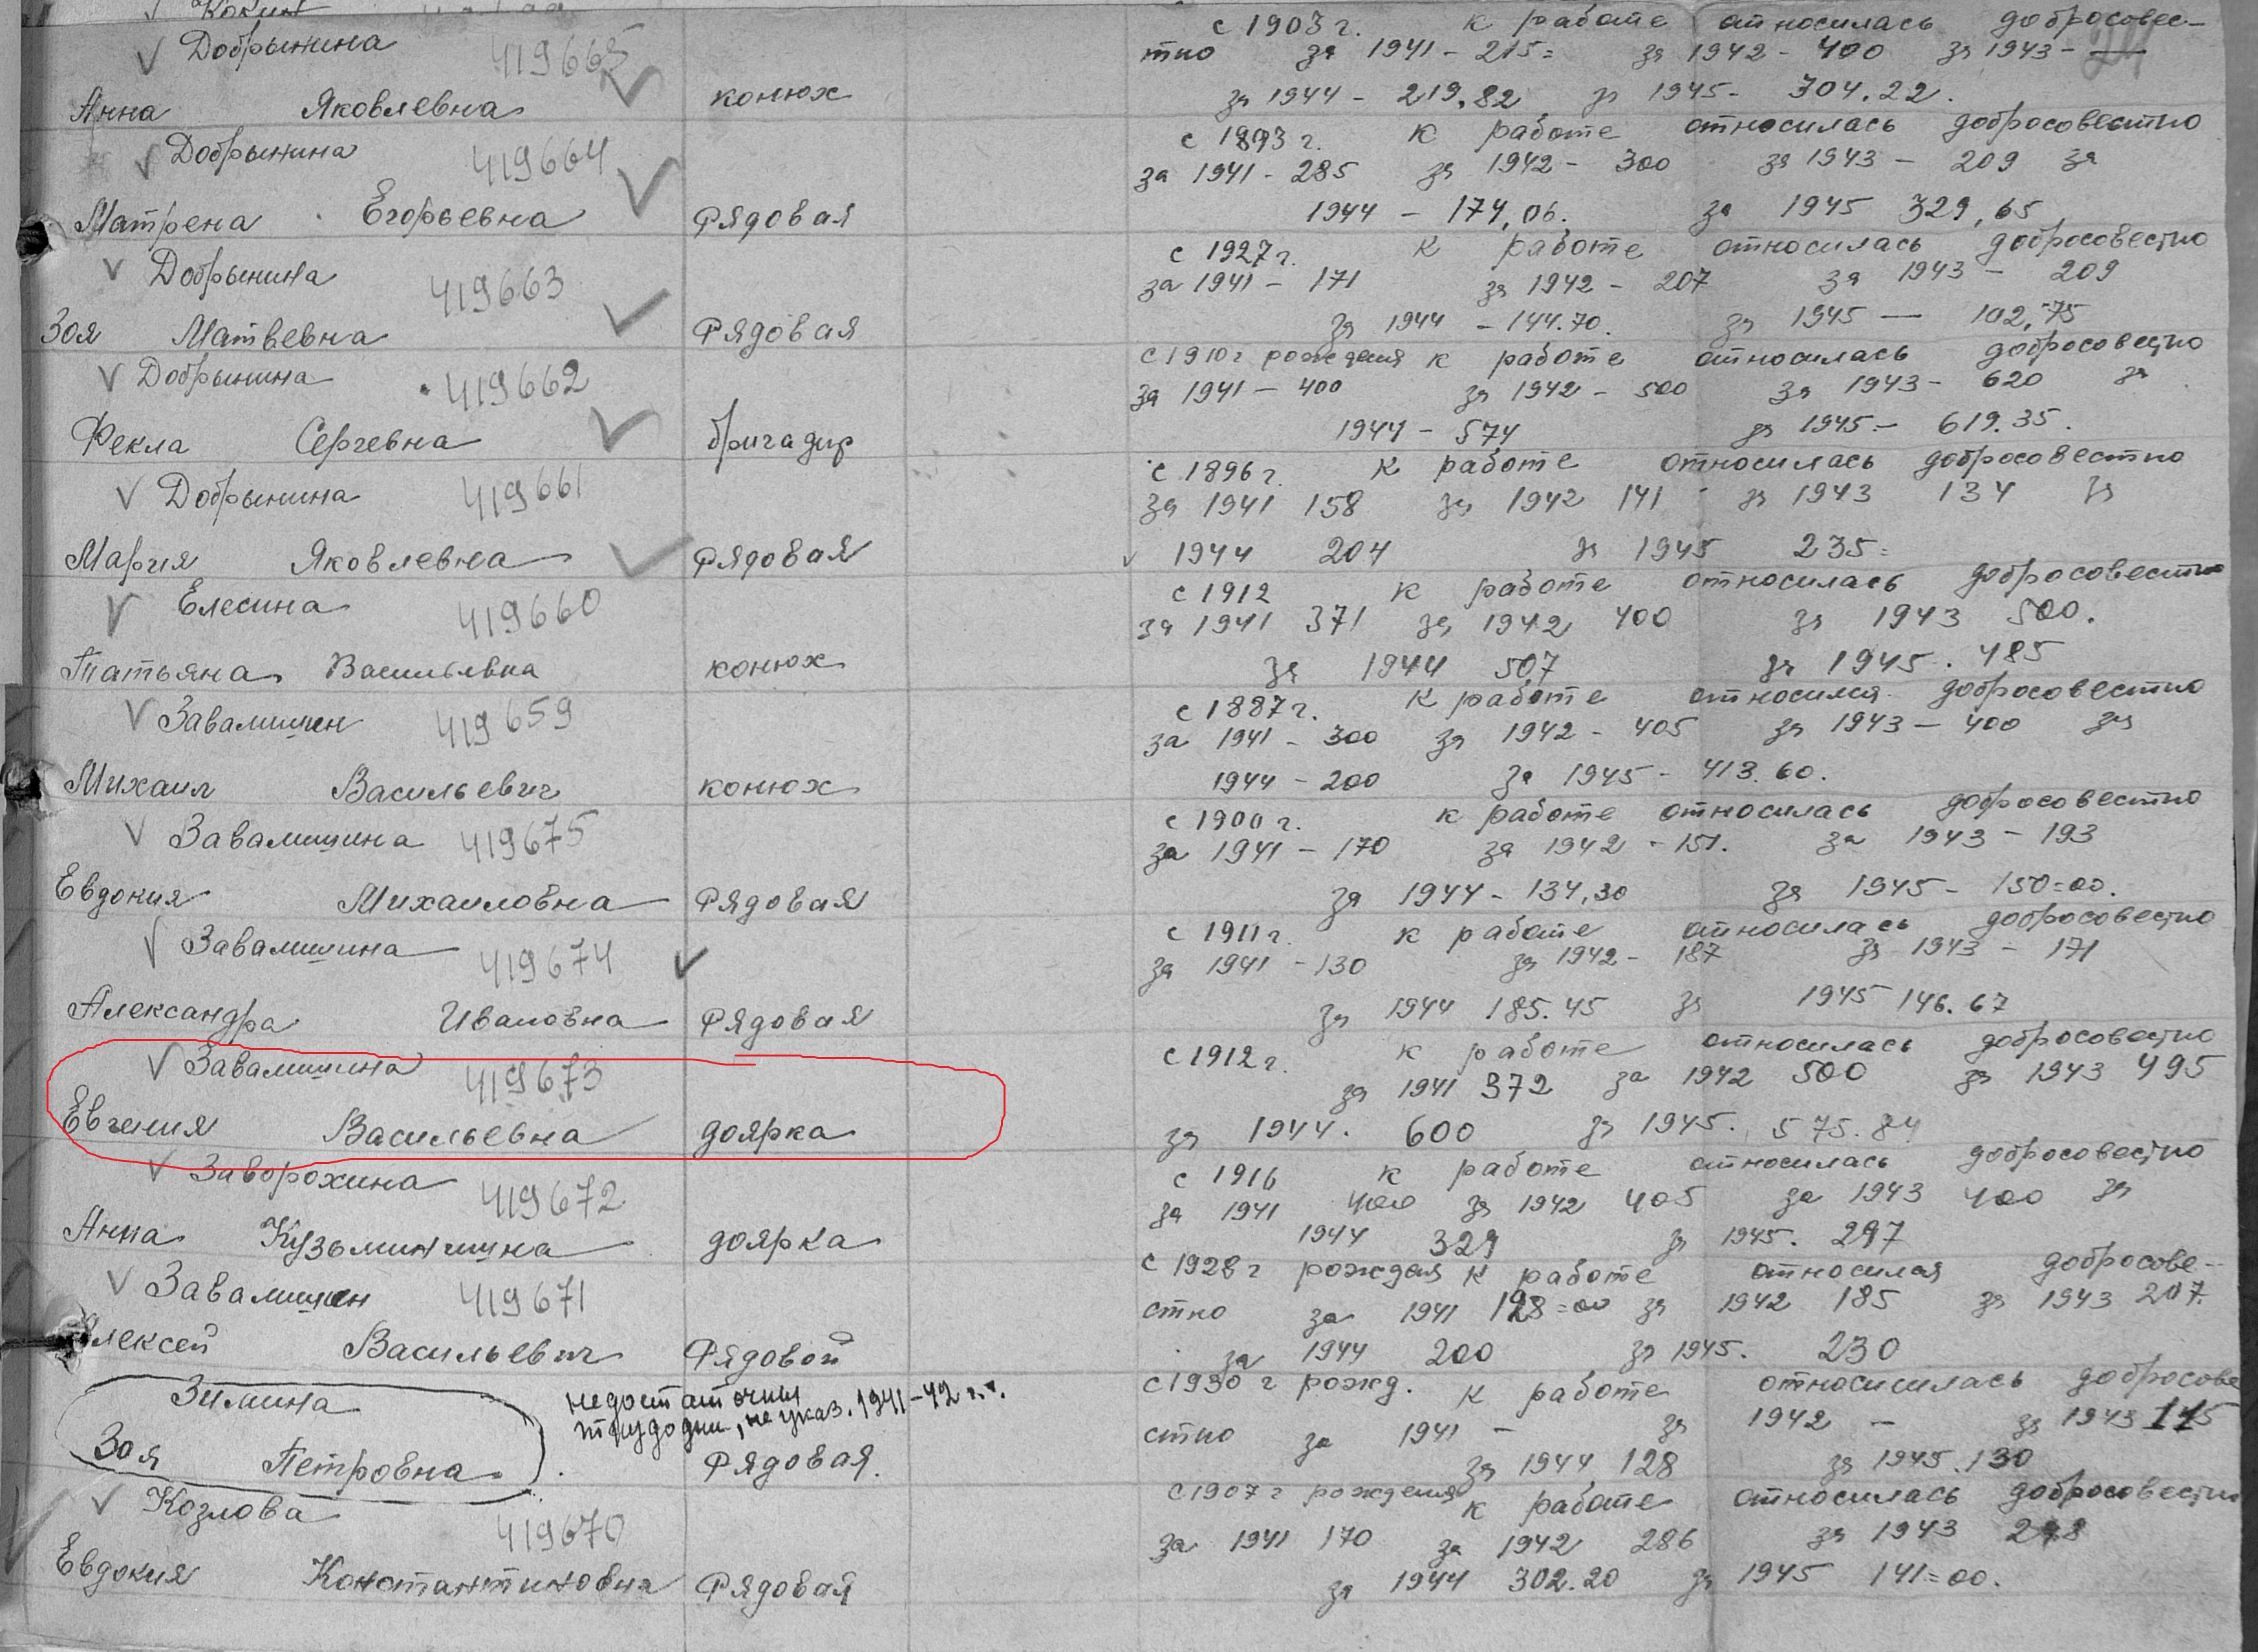 Добрынина 419665 с 1903 г. к работе относилась добросовес-
тно за 1941 - 215= за 1942 - 400 за 1943 -
Анна Яковлевна конюх за 1944 - 219.82 за 1945 - 304.22.
Добрынина 419664 с 1893 г. к работе относилась добросовестно
за 1941 - 285 за 1942 - 300 за 1943 - 209 за
Матрена Егорьевна Рядовая 1944 - 174,06. за 1945 329,65
Добрынина 419663 с 1927 г. к работе относилась добросовестно
за 1941 - 171 за 1942 - 207 за 1943 - 209
Зоя Матвевна Рядовая за 1944 - 144.70. за 1945 — 102,75
Добрынина 419662 с 1910 г рождения к работе относилась добросовестно
за 1941 - 400 за 1942 - 500 за 1943 - 620 за
Фекла Сергевна бригадир 1944 - 574 за 1945 - 619.35.
Добрынина 419661 с 1896 г. к работе относилась добросовестно
за 1941 158 за 1942 141 за 1943 134 за
Мария Яковлевна Рядовая 1944 204 за 1945 235=
Елесина 419660 с 1912 к работе относилась добросовестно
за 1941 371 за 1942 400 за 1943 500.
Татьяна Васильевна конюх за 1944 507 за 1945. 485
Завалишин 419659 с 1887 г. к работе относился добросовестно
за 1941 - 300 за 1942 - 405 за 1943 - 400 за
Михаил Васильевич конюх 1944 - 200 за 1945 - 413.60.
Завалишина 419675 с 1900 г. к работе относилась добросовестно
за 1941 - 170 за 1942 - 151. за 1943 - 193
Евдокия Михаиловна Рядовая за 1944 - 134,30 за 1945 - 150=00.
Завалишина 419674 с 1911 г. к работе относилась добросовестно
за 1941 - 130 за 1942 - 187 за 1943 - 171
Александра Ивановна Рядовая за 1944 185.45 за 1945 146.67
Завалишина 419673 с 1912 г. к работе относилась добросовестно
за 1941 372 за 1942 500 за 1943 495
Евгения Васильевна доярка за 1944. 600 за 1945. 575.84
Заворохина 419672 с 1916 к работе относилась добросовестно
за 1941 400 за 1942 405 за 1943 400 за
Анна Кузьминична доярка 1944 329 за 1945. 297
Завалишин 419671 с 1928 г рождения к работе относился добросове-
стно за 1941 128=00 за 1942 185 за 1943 207.
Алексей Васильевич Рядовой за 1944 200 за 1945. 230
Зимина недостаточны с 1930 г рожд. к работе относисилась добросове
трудодни, не указ. 1941-42 г.г. стно за 1941 - за 1942 - за 1943 115
Зоя Петровна Рядовая. за 1944 128 за 1945. 130
Козлова 419670 с 1907 г рождения к работе относилась добросовестно
за 1941 170 за 1942 286 за 1943 298
Евдокия Константиновна Рядовая за 1944 302.20 за 1945 141=00.